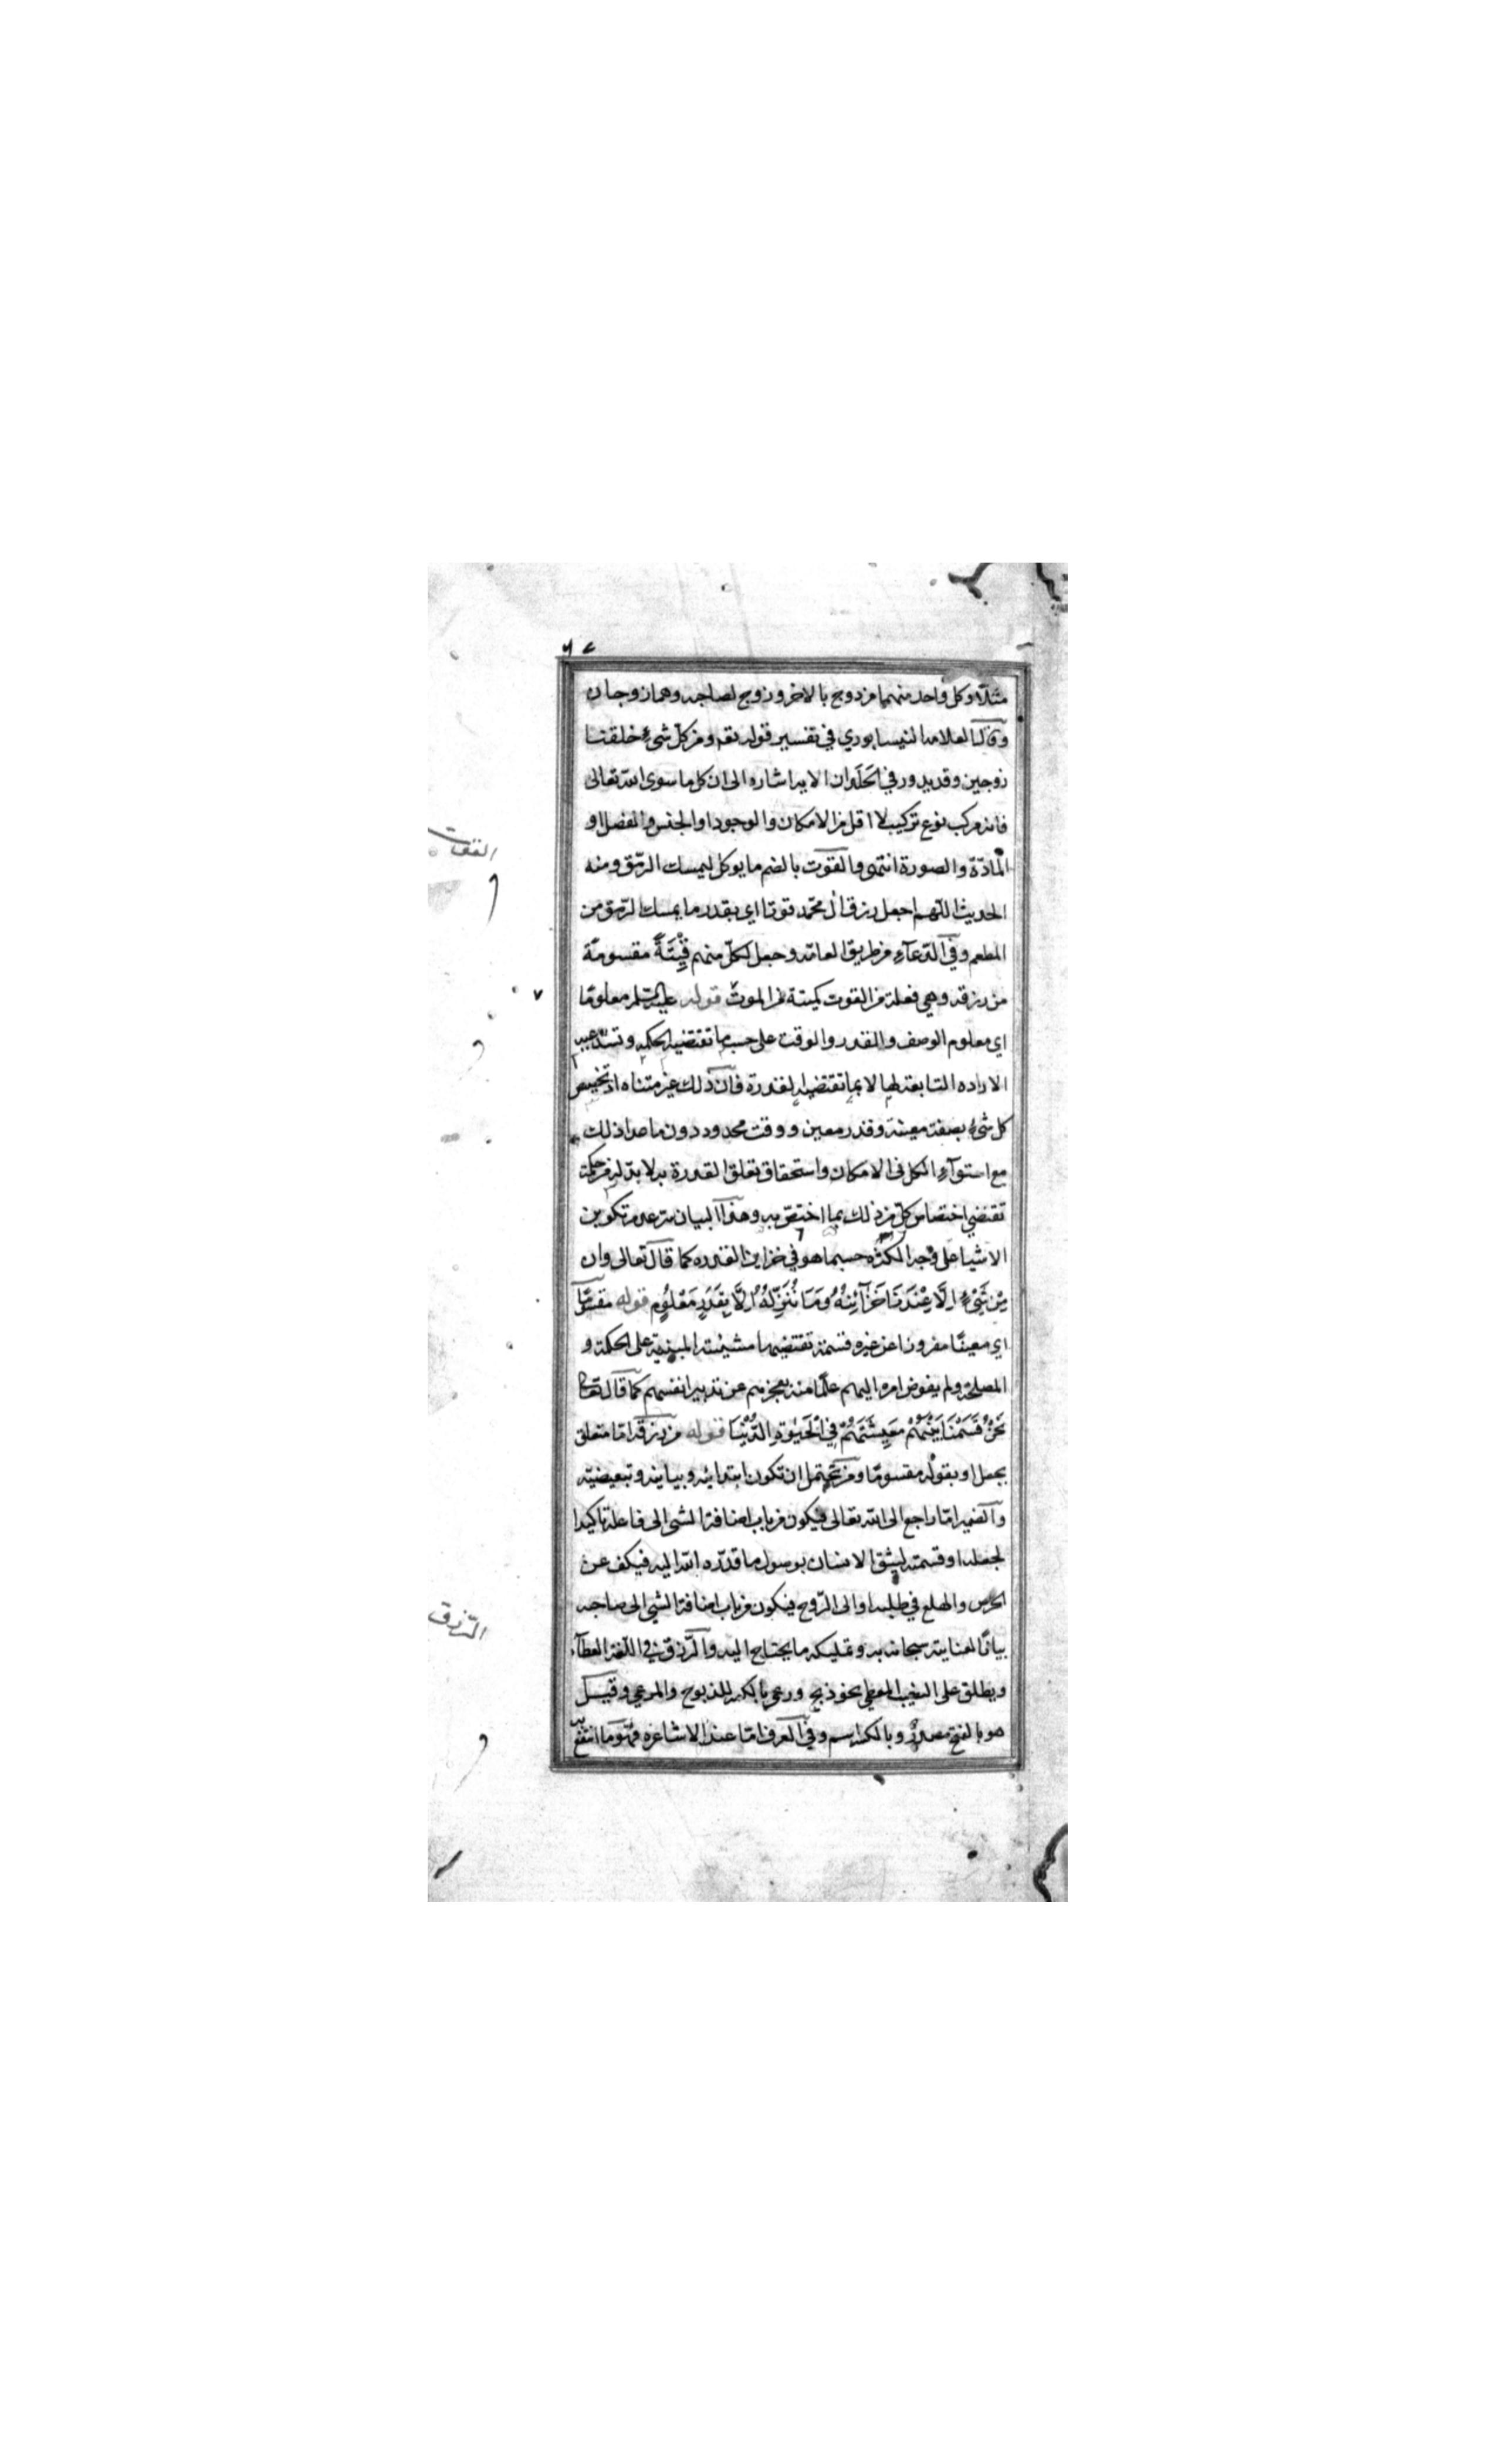 ٦٢
مثلا وكل واحد منهما مزدوج بالاخر وزوج لصاحبه وهما زوجان
وقال العلامه النيسابوري في تفسير قوله تعم ومن كل شيء خلقنا
زوجين وقد يدور في الخلد ان الايه اشاره الى ان كل ما سوى الله تعالى
فانه مركب نوع تركيب لا اقل من الامكان والوجود او الجنس والفصل او
المادّة والصورة انتهى والقوت بالضم ما يوكل ليمسك الرمق ومنه
الحديث اللهم اجعل رزق ال محمّد قوتا اي بقدر ما يمسك الرمق من
المطعم وفي الدّعآء من طريق العامّه وجعل لكلّ منهم قِيْتَةً مقسومة
من رزقه وهي فعلة من القوت كميتة من الموت قوله عليه السّلم معلومًا
اي معلوم الوصف والقدر والوقت على حسب ما تقتضيه الحكمه وتستدعيه
الاراده التابعة لها لا بما تقتضيه القدرة فان ذلك غير متناه اذ تخصيص
كل شيء بصفة معينة وقدر معين ووقت محدود دون ما عدا ذلك
مع استوآء الكل في الامكان واستحقاق تعلق القدرة به لا بد له من حكمة
تقتضي اختصاص كلّ من ذلك بما اختصّ به وهذا البيان سر عدم تكوين
الاشيا على وجه الكثره حسبما هو في خزاين القدره كما قال تعالى وان
مِنْ شَيْءٍ اِلَّا عِنْدَنَا خَزَآئِنُهُ وَمَا نُنَزِّلُهُ اِلَّا بِقَدَرٍ مَعْلُومٍ قوله مقسومًا
اي معينًا مفروزا عن غيره قسمة تقتضيها مشيئته المبنية على الحكمة و
المصلحة ولم يفوض امره اليهم علمًا منه بعجزهم عن تدبير انفسهم كما قال تعالى
نَحْنُ قَسَمْنَا بَيْنَهُمْ مَعِيشَتَهُمْ فِي الْحَيٰوةِ الدُّنْيَا قوله من رزقه امّا متعلق
بجعل او بقوله مقسومًا ومن تحتمل ان تكون ابتدائيه وبيانيه وتبعيضيه
والضمير امّا راجع الى الله تعالى فيكون من باب اضافة الشي الى فاعله تاكيدا
لجعله او قسمته ليثق الانسان بوصول ما قدّره الله اليه فيكف عن
الحرص والهلع في طلبه او الى الرّوح فيكون من باب اضافة الشي الى صاحبه
بيانًا لعنايته سبحانه به وتمليكه ما يحتاج اليه والرّزق في اللّغة العطآء
ويطلق على النصيب المعطى نحو ذبح ورعي بالكسر للمذبوح والمرعي وقيل
هو بالفتح مصدر وبالكسر اسم وفي العرف امّا عند الاشاعره فهو ما انتفع به
القوت
الرّزق